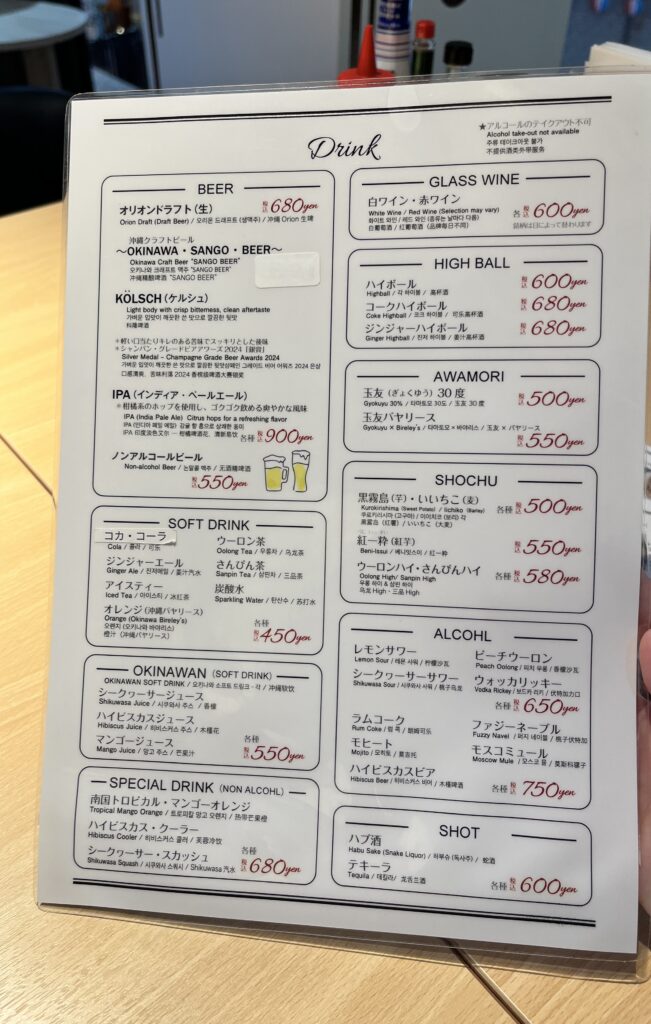 Drink
★アルコールのテイクアウト不可
Alcohol take-out not available
주류 테이크아웃 불가
不提供酒类外带服务
BEER
オリオンドラフト（生） 税込 680yen
Orion Draft (Draft Beer) / 오리온 드래프트 (생맥주) / 沖縄 Orion 生啤
沖縄クラフトビール
～OKINAWA・SANGO・BEER～
Okinawa Craft Beer "SANGO BEER"
오키나와 크래프트 맥주 "SANGO BEER"
沖縄精酿啤酒 "SANGO BEER"
KÖLSCH（ケルシュ）
Light body with crisp bitterness, clean aftertaste
가벼운 입맛이 깨끗한 쓴 맛으로 깔끔한 뒷맛
科隆啤酒
＊軽い口当たりキレのある苦味でスッキリとした後味
＊シャンパン・グレードビアアワーズ 2024「銀賞」
Silver Medal – Champagne Grade Beer Awards 2024
口感清爽，苦味利落 2024 香槟级啤酒大赛银奖
IPA（インディア・ペールエール）
＊柑橘系のホップを使用し、ゴクゴク飲める爽やかな風味
IPA (India Pale Ale) Citrus hops for a refreshing flavor
IPA (인디아 페일 에일) 감귤 향 홉으로 상쾌한 풍미
IPA 印度淡色艾尔 — 柑橘啤酒花，清新易饮 各種 税込 900yen
ノンアルコールビール
Non-alcohol Beer / 논알콜 맥주 / 无酒精啤酒
税込 550yen
SOFT DRINK
コカ・コーラ
Cola / 콜라 / 可乐
ジンジャーエール
Ginger Ale / 진저에일 / 姜汁汽水
アイスティー
Iced Tea / 아이스티 / 冰红茶
オレンジ（沖縄バヤリース）
Orange (Okinawa Bireley's)
오렌지 (오키나와 바야리스)
橙汁（沖縄バヤリース）
ウーロン茶
Oolong Tea / 우롱차 / 乌龙茶
さんぴん茶
Sanpin Tea / 삼핀차 / 三品茶
炭酸水
Sparkling Water / 탄산수 / 苏打水
各種 税込 450yen
OKINAWAN（SOFT DRINK）
OKINAWAN SOFT DRINK / 오키나와 소프트 드링크・各 / 沖縄软饮
シークヮーサージュース
Shikuwasa Juice / 시쿠와사 주스 / 香檬
ハイビスカスジュース
Hibiscus Juice / 히비스커스 주스 / 木槿花
マンゴージュース
Mango Juice / 망고 주스 / 芒果汁
各種 税込 550yen
SPECIAL DRINK（NON ALCOHL）
南国トロピカル・マンゴーオレンジ
Tropical Mango Orange / 트로피칼 망고 오렌지 / 热带芒果橙
ハイビスカス・クーラー
Hibiscus Cooler / 히비스커스 쿨러 / 芙蓉冷饮
シークヮーサー・スカッシュ
Shikuwasa Squash / 시쿠와사 스쿼시 / Shikuwasa 汽水
各種 税込 680yen
GLASS WINE
白ワイン・赤ワイン
White Wine / Red Wine (Selection may vary)
화이트 와인 / 레드 와인 (종류는 날마다 다름)
白葡萄酒 / 红葡萄酒（品牌每日不同）
各 税込 600yen
銘柄は日によって替わります
HIGH BALL
ハイボール 税込 600yen
Highball / 각 하이볼 / 高杯酒
コークハイボール 税込 680yen
Coke Highball / 코크 하이볼 / 可乐高杯酒
ジンジャーハイボール 税込 680yen
Ginger Highball / 진저 하이볼 / 姜汁高杯酒
AWAMORI
玉友（ぎょくゆう）30度 税込 500yen
Gyokuyu 30% / 다마토모 30도 / 玉友 30度
玉友バヤリース
Gyokuyu × Bireley's / 다마토모 × 바야리스 / 玉友 × バヤリース
税込 550yen
SHOCHU
黒霧島（芋）・いいちこ（麦） 各種 税込 500yen
Kurokirishima (Sweet Potato) / Iichiko (Barley)
쿠로키리시마 (고구마) / 이이치코 (보리) 각
黒霧島（红薯）/ いいちこ（大麦）
紅一粋（紅芋） 税込 550yen
Beni-Issui / 베니잇스이 / 紅一粋
ウーロンハイ・さんぴんハイ 各種 税込 580yen
Oolong High/ Sanpin High
우롱 하이 & 삼핀 하이
乌龙 High・三品 High
ALCOHL
レモンサワー
Lemon Sour / 레몬 사워 / 柠檬沙瓦
シークヮーサーサワー
Shikuwasa Sour / 시쿠와사 사워 / 桃子乌龙
ピーチウーロン
Peach Oolong / 피치 우롱 / 香檬沙瓦
ウォッカリッキー
Vodka Rickey / 보드카 리키 / 伏特加力口
各種 税込 650yen
ラムコーク
Rum Coke / 럼 콕 / 朗姆可乐
モヒート
Mojito / 모히토 / 莫吉托
ハイビスカスビア
Hibiscus Beer / 히비스커스 비어 / 木槿啤酒
ファジーネーブル
Fuzzy Navel / 퍼지 네이블 / 桃子伏特加
モスコミュール
Moscow Mule / 모스코 뮬 / 莫斯科骡子
各種 税込 750yen
SHOT
ハブ酒
Habu Sake (Snake Liquor) / 하부슈 (독사주) / 蛇酒
テキーラ
Tequila / 데킬라 / 龙舌兰酒
各種 税込 600yen